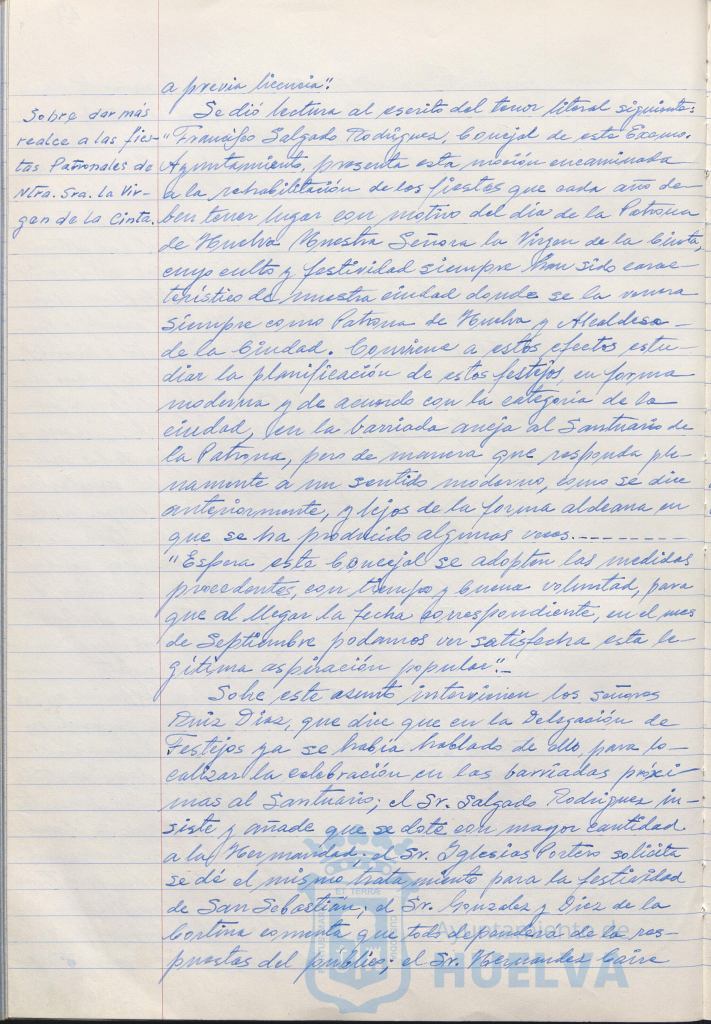 a previa licencia".
Sobre dar más
realce a las fies-
tas Patronales de
Ntra. Sra. La Vir-
gen de la Cinta.
Se dió lectura al escrito del tenor literal siguiente:
"Francisco Salgado Rodríguez, Concejal de este Excmo.
Ayuntamiento, presenta esta moción encaminada
a la rehabilitación de las fiestas que cada año de-
ben tener lugar con motivo del día de la Patrona
de Huelva Nuestra Señora la Virgen de la Cinta,
cuyo culto y festividad siempre han sido carac-
terístico de nuestra ciudad donde se la venera
siempre como Patrona de Huelva y Alcaldesa -
de la Ciudad. Conviene a estos efectos, estu-
diar la planificación de estos festejos, en forma
moderna y de acuerdo con la categoría de la
ciudad, en la barriada aneja al Santuario de
la Patrona, pero de manera que responda ple-
namente a un sentido moderno, como se dice
anteriormente, y lejos de la forma aldeana en
que se ha producido algunas veces.---------
"Espera este Concejal se adopten las medidas
procedentes, con tiempo y buena voluntad, para
que al llegar la fecha correspondiente, en el mes
de Septiembre podamos ver satisfecha esta le-
gítima aspiración popular".-
Sobre este asunto intervienen los señores
Ruiz Diaz, que dice que en la Delegación de
Festejos ya se había hablado de ello para lo-
calizar la celebración en las barriadas próxi-
mas al Santuario; el Sr. Salgado Rodriguez in-
siste y añade que se dote con mayor cantidad
a la Hermandad; el Sr. Iglesias Portero solicita
se dé el mismo tratamiento para la festividad
de San Sebastián; el Sr. Gonzalez y Diez de la
Cortina comenta que todo dependera de la res-
puestas del público; el Sr. Hernandez
ET TERRÆ
Ayuntamiento de
HUELVA